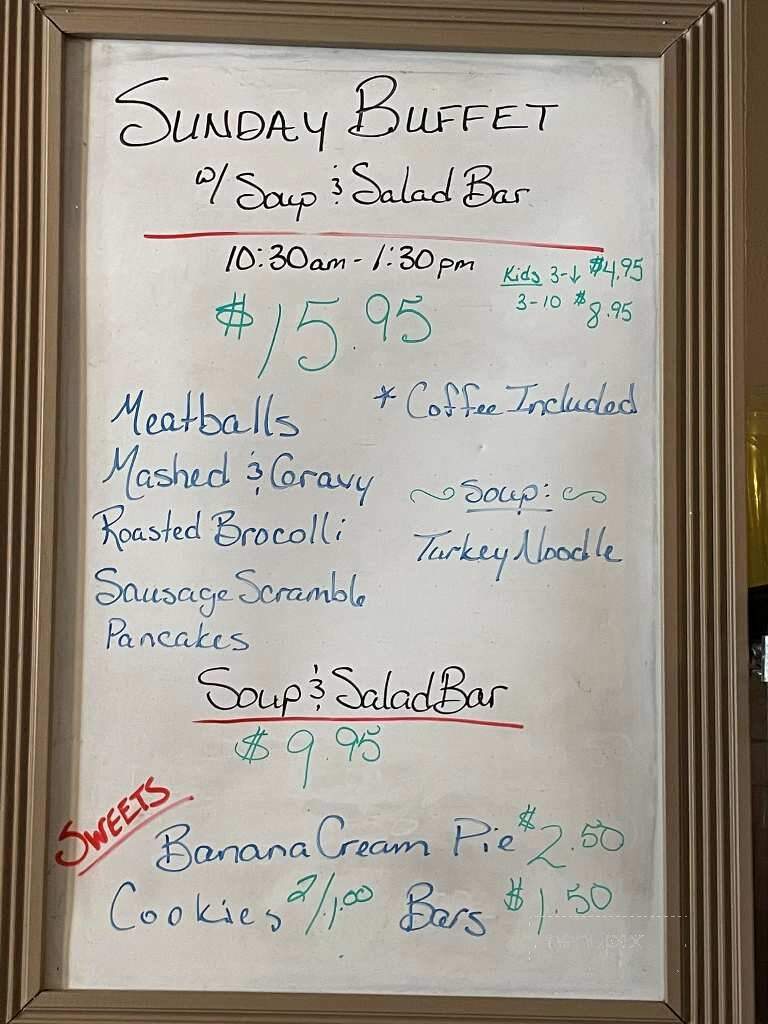 SUNDAY BUFFET
w/ Soup & Salad Bar
10:30am - 1:30pm
Kids 3-↓ $4.95
3-10 $8.95
$15.95
* Coffee Included
Meatballs
Mashed & Gravy
Roasted Brocolli
Sausage Scramble
Pancakes
~ Soup: ~
Turkey Noodle
Soup & Salad Bar
$9.95
SWEETS
Banana Cream Pie $2.50
Cookies 2/1.00 Bars $1.50
menupix